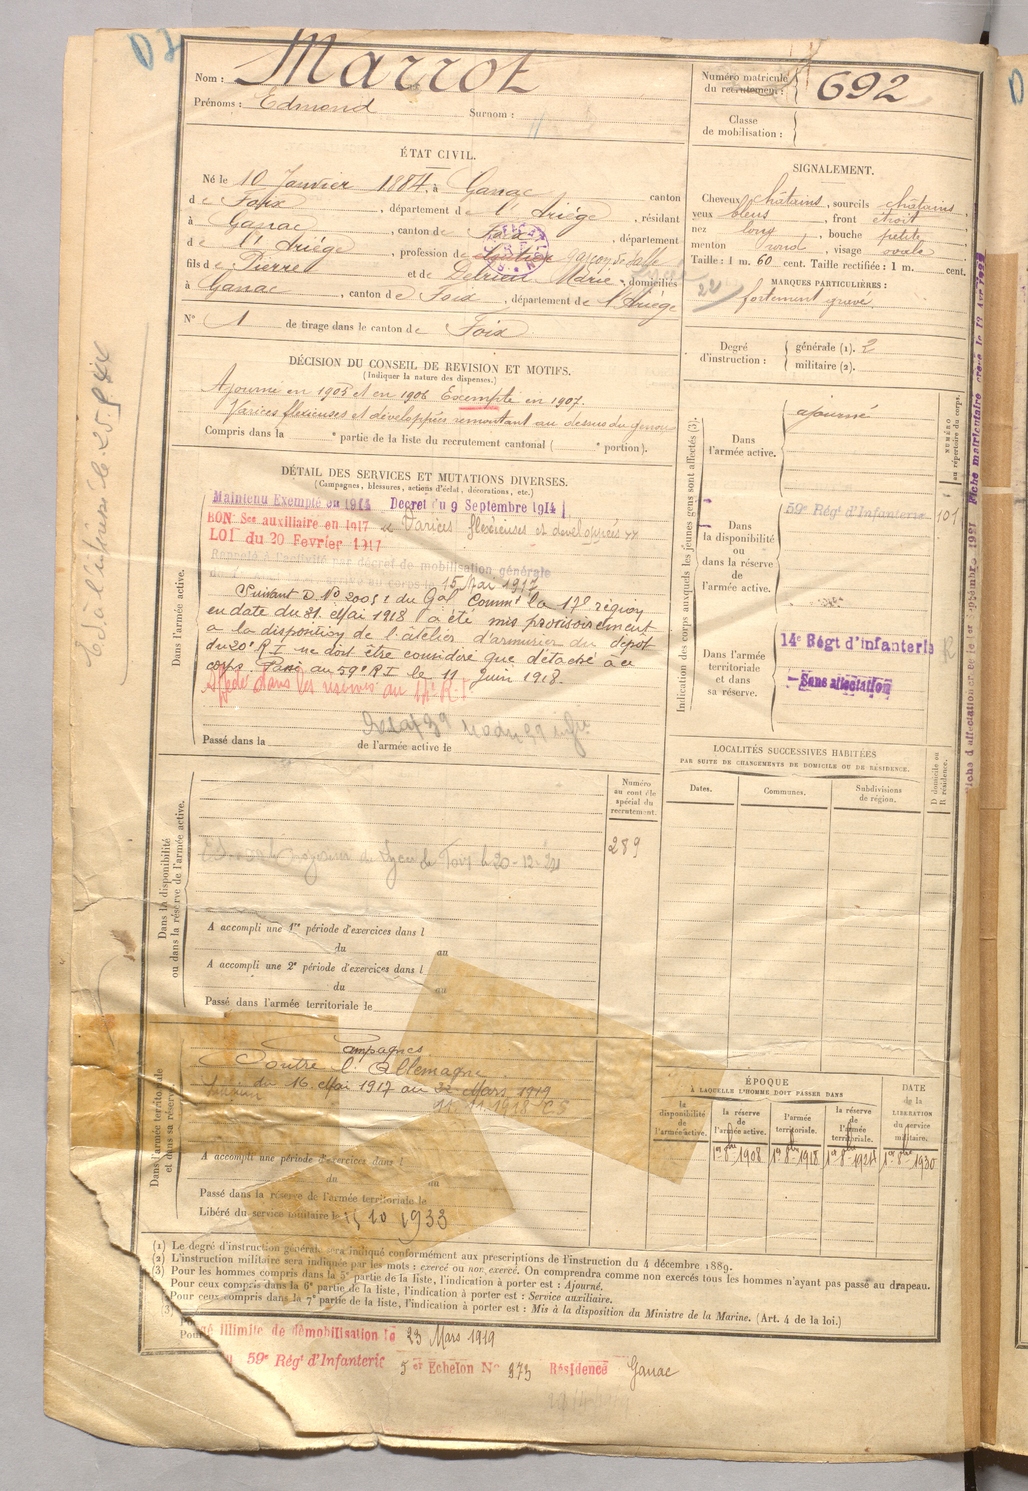 Nom : Marrot
Prénoms : Edmond Surnom :
Numéro matricule du recrutement : 692
Classe de mobilisation :
ÉTAT CIVIL.
Né le 10 Janvier 1884, à Ganac canton
de Foix, département de l'Ariège, résidant
à Ganac, canton de Foix, département
de l'Ariège, profession de garçon de salle
fils de Pierre et de Delrieu Marie, domiciliés
à Ganac, canton de Foix, département de l'Ariège
N° 1 de tirage dans le canton de Foix
SIGNALEMENT.
Cheveux châtains, sourcils châtains,
yeux bleus, front étroit
nez long, bouche petite
menton rond, visage ovale
Taille : 1 m. 60 cent. Taille rectifiée : 1 m. cent.
MARQUES PARTICULIÈRES :
fortement gravé
Degré d'instruction : générale (1). 2
militaire (2).
DÉCISION DU CONSEIL DE REVISION ET MOTIFS.
(Indiquer la nature des dispenses.)
Ajourné en 1905 et en 1906 Exempté en 1907.
Varices flexieuses et développées remontant au dessus du genou
Compris dans la e partie de la liste du recrutement cantonal ( e portion).
DÉTAIL DES SERVICES ET MUTATIONS DIVERSES.
(Campagnes, blessures, actions d'éclat, décorations, etc.)
Dans l'armée active.
Maintenu Exempté en 1914 Decret du 9 Septembre 1914
BON Ser auxiliaire en 1917 Varices flexieuses et développées
LOI du 20 Fevrier 1917
Rappelé à l'activité par décret de mobilisation générale
arrivé au corps le 15 Mai 1917
Suivant D. N° 2005 du Gal Commt la 17e région
en date du 31 Mai 1918 a été mis provisoirement
a la disposition de l'atelier d'armurier du dépôt
du 20e R.I. ne doit être considéré que détaché a ce
corps. Passé au 59e R I le 11 Juin 1918.
Passé dans la de l'armée active le
Indication des corps auxquels les jeunes gens sont affectés (3).
NUMÉRO au répertoire du corps.
Dans l'armée active. ajourné
Dans la disponibilité ou dans la réserve de l'armée active. 59e Régt d'Infanterie 101
Dans l'armée territoriale et dans sa réserve. 14e Régt d'infanterie
Sans affectation
LOCALITÉS SUCCESSIVES HABITÉES
PAR SUITE DE CHANGEMENTS DE DOMICILE OU DE RÉSIDENCE.
Dates. Communes. Subdivisions de région. D domicile ou R résidence.
Dans la disponibilité ou dans la réserve de l'armée active.
Numéro au contrôle spécial du recrutement.
289
A accompli une 1re période d'exercices dans l
du au
A accompli une 2e période d'exercices dans l
du au
Passé dans l'armée territoriale le
Dans l'armée territoriale et dans sa réserve.
Campagnes
Contre l'Allemagne
du 16 Mai 1917 au 22 Mars 1919
A accompli une période d'exercices dans l
du au
Passé dans la réserve de l'armée territoriale le
Libéré du service militaire le 15 10 1933
ÉPOQUE
À LAQUELLE L'HOMME DOIT PASSER DANS
la disponibilité de l'armée active. la réserve de l'armée active. l'armée territoriale. la réserve de l'armée territoriale. DATE de la LIBÉRATION du service militaire.
1er 8bre 1908 1er 8bre 1918 1er 8bre 1924 1er 8bre 1930
(1) Le degré d'instruction générale sera indiqué conformément aux prescriptions de l'instruction du 4 décembre 1889.
(2) L'instruction militaire sera indiquée par les mots : exercé ou non exercé. On comprendra comme non exercés tous les hommes n'ayant pas passé au drapeau.
(3) Pour les hommes compris dans la 5e partie de la liste, l'indication à porter est : Ajourné.
Pour ceux compris dans la 6e partie de la liste, l'indication à porter est : Service auxiliaire.
Pour ceux compris dans la 7e partie de la liste, l'indication à porter est : Mis à la disposition du Ministre de la Marine. (Art. 4 de la loi.)
illimité de démobilisation le 23 Mars 1919
59e Régt d'Infanterie Echelon N° 273 Résidence Ganac